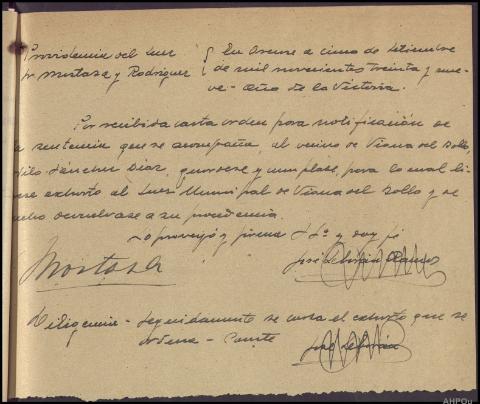 Providencia del Juez
Sr Mostaza y Rodriguez
En Orense a cinco de Setiembre
de mil novecientos treinta y nue-
ve - Año de la Victoria.
Por recibida carta orden para notificación de
la sentencia que se acompaña, al vecino de Viana del Bollo,
Sánchez Diaz, guardese y cumplase, para lo cual li-
brese exhorto al Juez Municipal de Viana del Bollo y
devuelvase a su procedencia.
Lo proveyó y firma S Sª y doy fe
Mostaza
José
Diligencia - Seguidamente se cursa el exhorto que se
ordena -
José
AHPOu